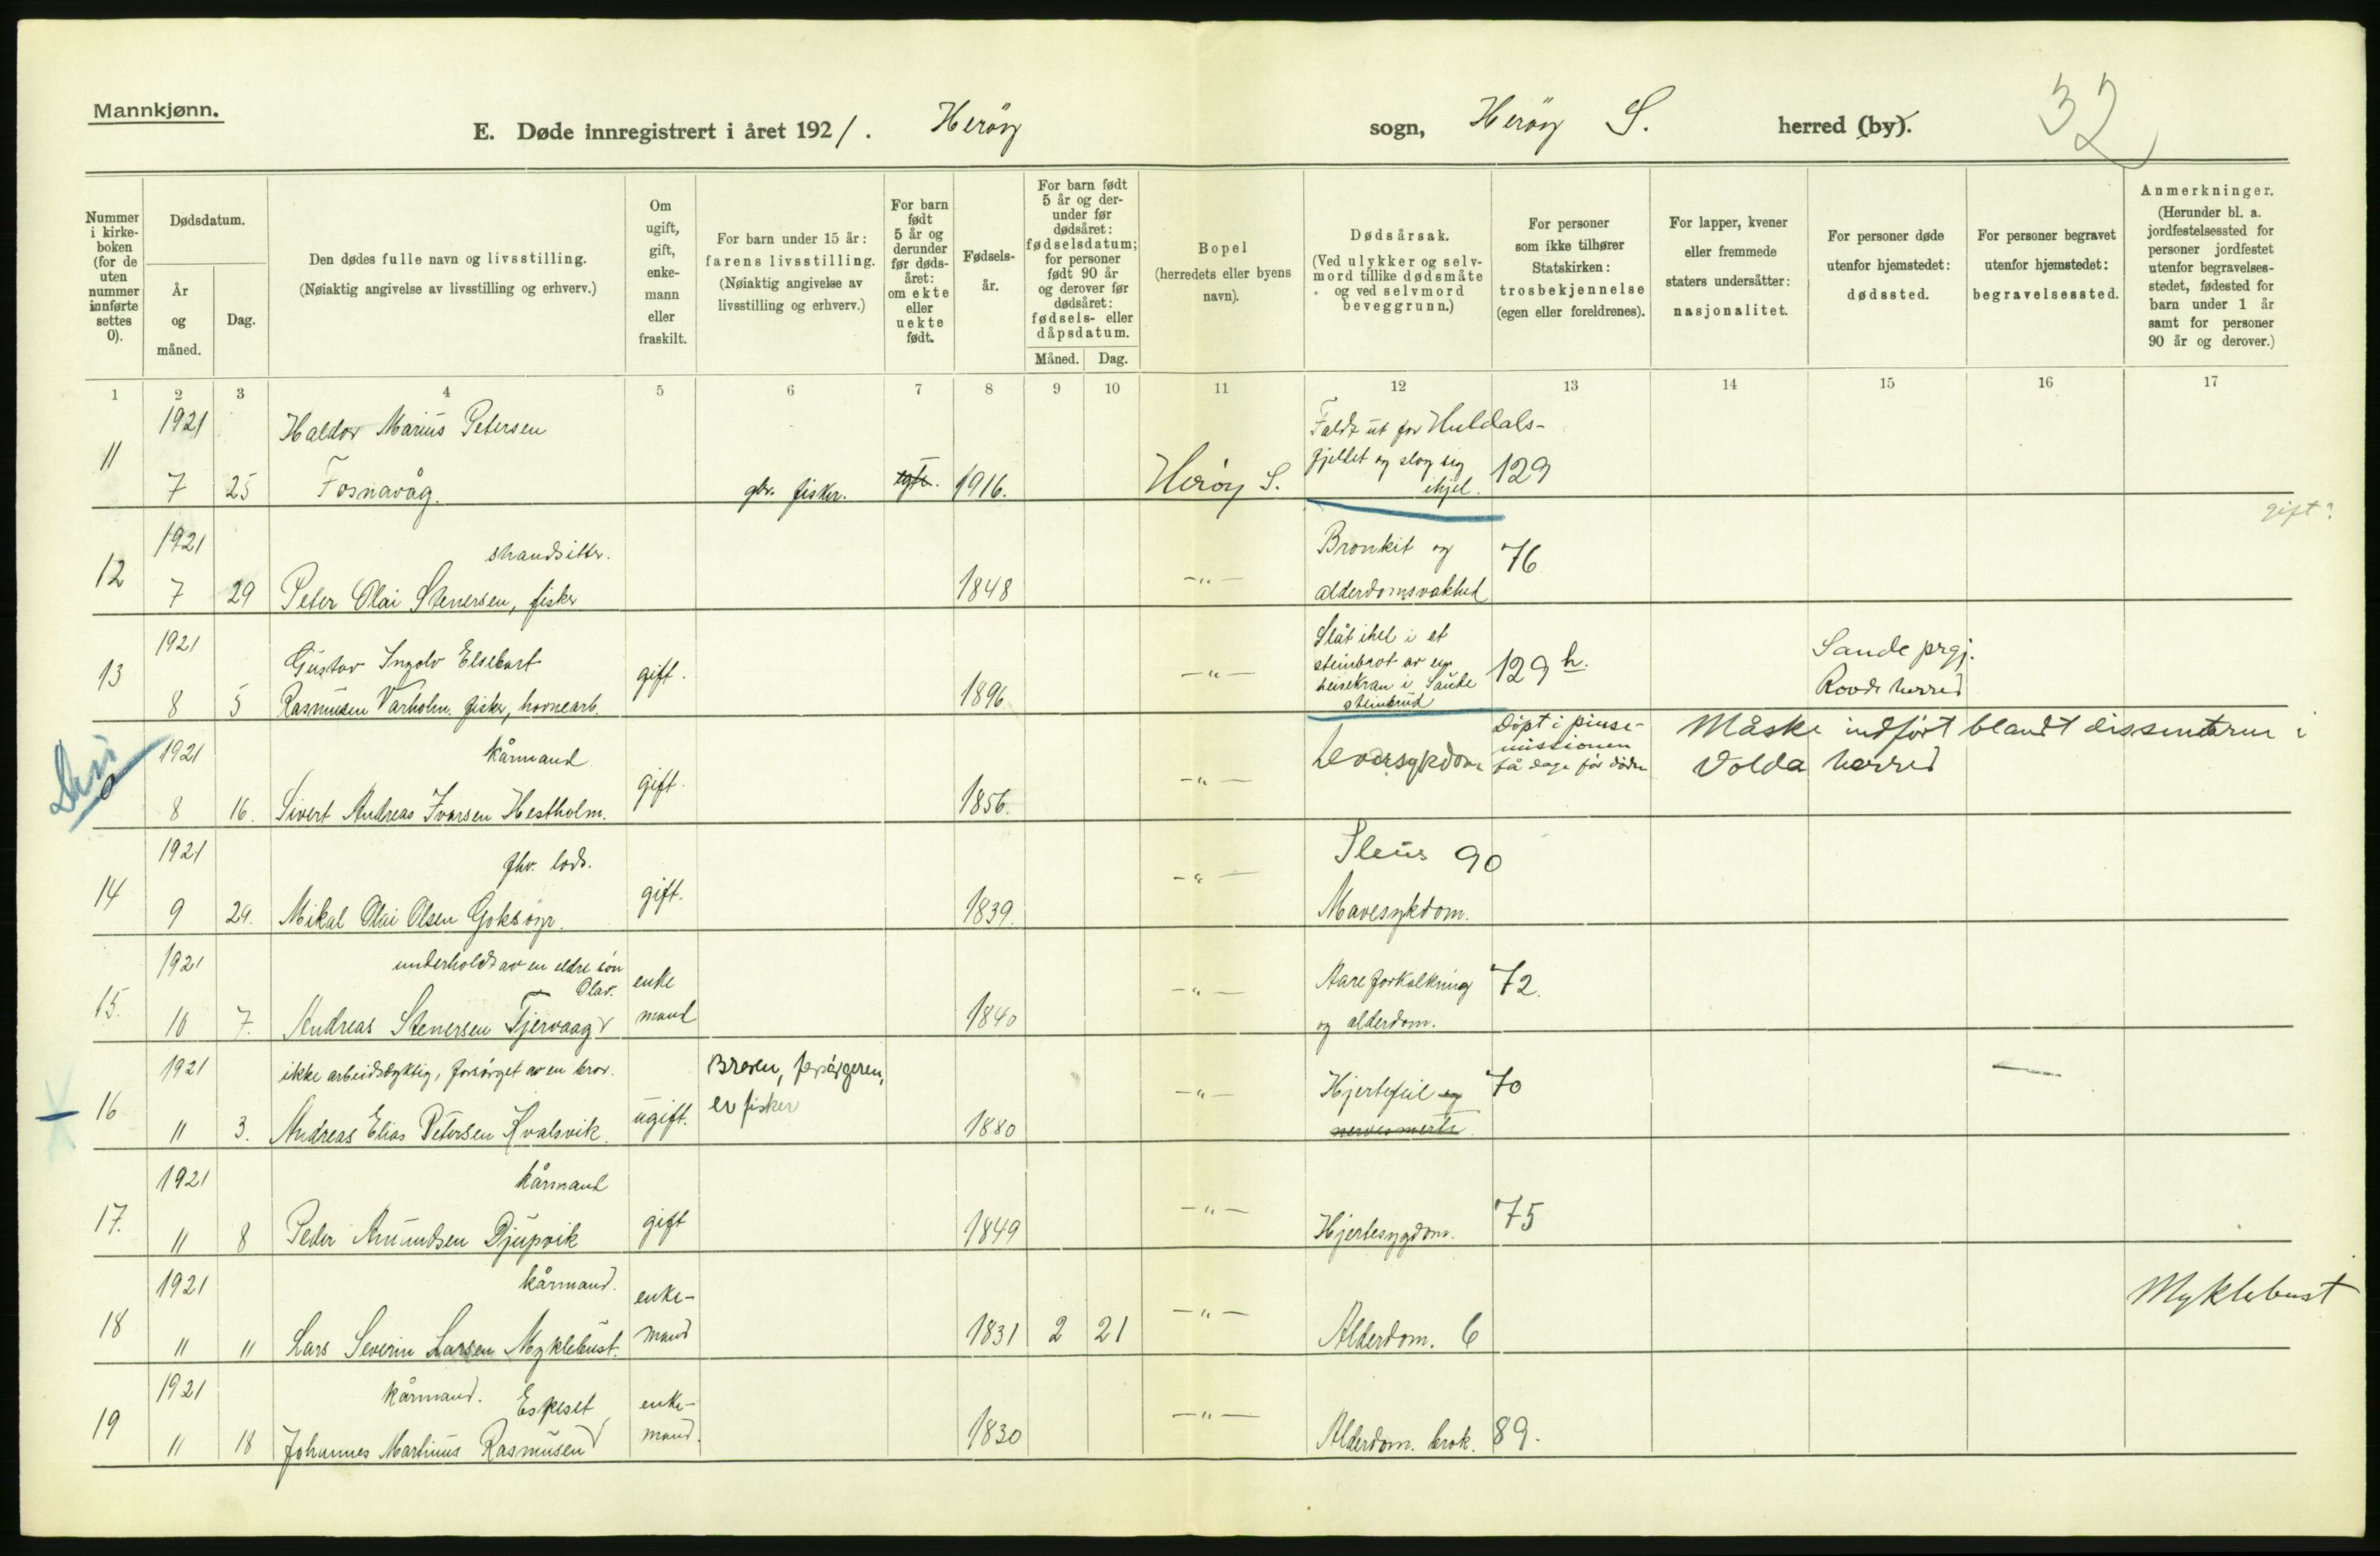 Mannkjønn.
E. Døde innregistrert i året 1921. Herøy sogn, Herøy S. herred (by).
32
Nummer i kirke-boken (for de uten nummer innførte settes 0).
Dødsdatum.
År og måned.
Dag.
Den dødes fulle navn og livsstilling.
(Nøiaktig angivelse av livsstilling og erhverv.)
Om ugift, gift, enke-mann eller fraskilt.
For barn under 15 år: farens livsstilling.
(Nøiaktig angivelse av livsstilling og erhverv.)
For barn født 5 år og derunder før døds-året: om ekte eller uekte født.
Fødsels-år.
For barn født 5 år og der-under før dødsåret: fødselsdatum; for personer født 90 år og derover før dødsåret: fødsels- eller dåpsdatum.
Måned. Dag.
Bopel
(herredets eller byens navn).
Dødsårsak.
(Ved ulykker og selv-mord tillike dødsmåte og ved selvmord beveggrunn.)
For personer som ikke tilhører Statskirken: trosbekjennelse (egen eller foreldrenes).
For lapper, kvener eller fremmede staters undersåtter: nasjonalitet.
For personer døde utenfor hjemstedet: dødssted.
For personer begravet utenfor hjemstedet: begravelsessted.
Anmerkninger.
(Herunder bl. a. jordfestelsessted for personer jordfestet utenfor begravelses-stedet, fødested for barn under 1 år samt for personer 90 år og derover.)
1 2 3 4 5 6 7 8 9 10 11 12 13 14 15 16 17
1921 Haldor Marius Petersen Faldt ut for Huldals-
11 7 25 Fosnavåg. gbr. fisker. egte. 1916. Herøy S. fjellet og slog sig ihjel. 129
gift?
1921 strandsitter. Bronkit og 76
12 7 29 Peter Olai Stenersen, fisker 1848 -"- alderdomsvakhet
1921 Gustav Ingolv Elsebart gift. -"- Slåt ihel i et steinbrot av en 129 h. Sande prgj.
13 8 5 Rasmusen Varholm. fisker, hovnearb. 1896 heisekran i Sande steinbrud Rovde herred
1921 kårmand gift. -"- Leversykdom Døpt i pinse-missionen få dage før døden Måske indført blandt dissenterne i Volda herred
0 8 16. Sivert Andreas Ivarsen Hestholm. 1856.
1921 fhv. lods. gift. -"- Ileus 90
14 9 29. Mikal Olai Olsen Goksøyr. 1839. Mavesykdom.
1921 underholdt av en eldre søn Olav. enke -"- Aareforkalkning 72.
15. 10 7. Andreas Stenersen Tjervaag mand 1840 og alderdom.
1921 ikke arbeidsdyktig, forsørget av en bror. Broren, forsørgeren, -"- Hjertefeil og 70
16 11 3. Andreas Elias Petersen Kvalsvik. ugift. er fisker 1880
1921 kårmand -"- 75
17. 11 8 Peder Amundsen Djupvik gift 1849 Hjertesygdom.
1921 kårmand. enke- -"- Myklebust
18 11 11 Lars Severin Larsen Myklebust. mand 1831 2 21 Alderdom. 6
1921 kårmand. Espeset enke- -"-
19 11 18 Johannes Martinus Rasmusen mand. 1830 Alderdom. brok. 89.